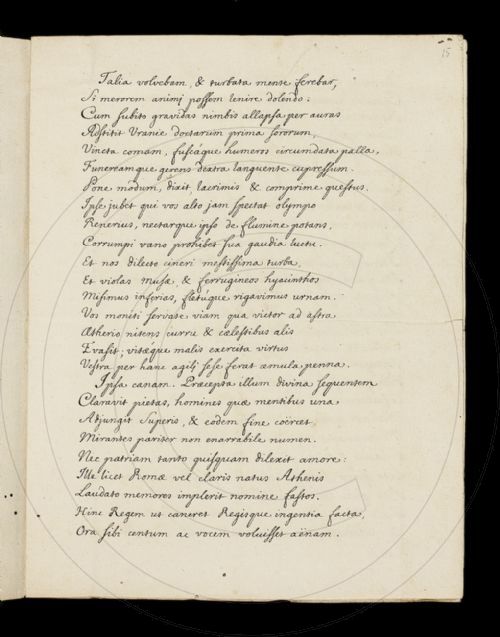 15
Talia volvebam, & turbata mente ferebar,
Si merorem animi possem lenire dolendo:
Cum subito gravidas nimbis allapsa per auras
Adstitit Uranie doctarum prima sororum,
Vincta comam, fuscáque humeros circumdata palla,
Funereamque gerens dextra languente cupressum.
Pone modum, dixit, lacrimis & comprime questus.
Ipse jubet qui vos alto jam spectat olympo
Renerius, nectarque ipso de flumine potans,
Corrumpi vano prohibet sua gaudia luctu.
Et nos dilecto cineri mestissima turba,
Et violas Musæ, & ferrugineos hyacinthos
Misimus inferias, fletúque rigavimus urnam.
Vos moniti servate viam qua victor ad astra
Ætherio nitens curru & cælestibus alis
Evasit; vitæque malis exercita virtus
Vestra per hanc agili sese ferat æmula penna.
Ipsa canam. Præcepta illum divina sequentem
Claravit pietas, homines quæ mentibus una
Adjungit Superis, & eodem fine coercet
Mirantes pariter non enarrabile numen.
Nec patriam tanto quisquam dilexit amore:
Ille licet Romæ vel claris natus Athenis
Laudato memores implerit nomine fastos.
Hinc Regem ut caneret Regisque ingentia facta,
Ora sibi centum ac vocem voluisset aënam.